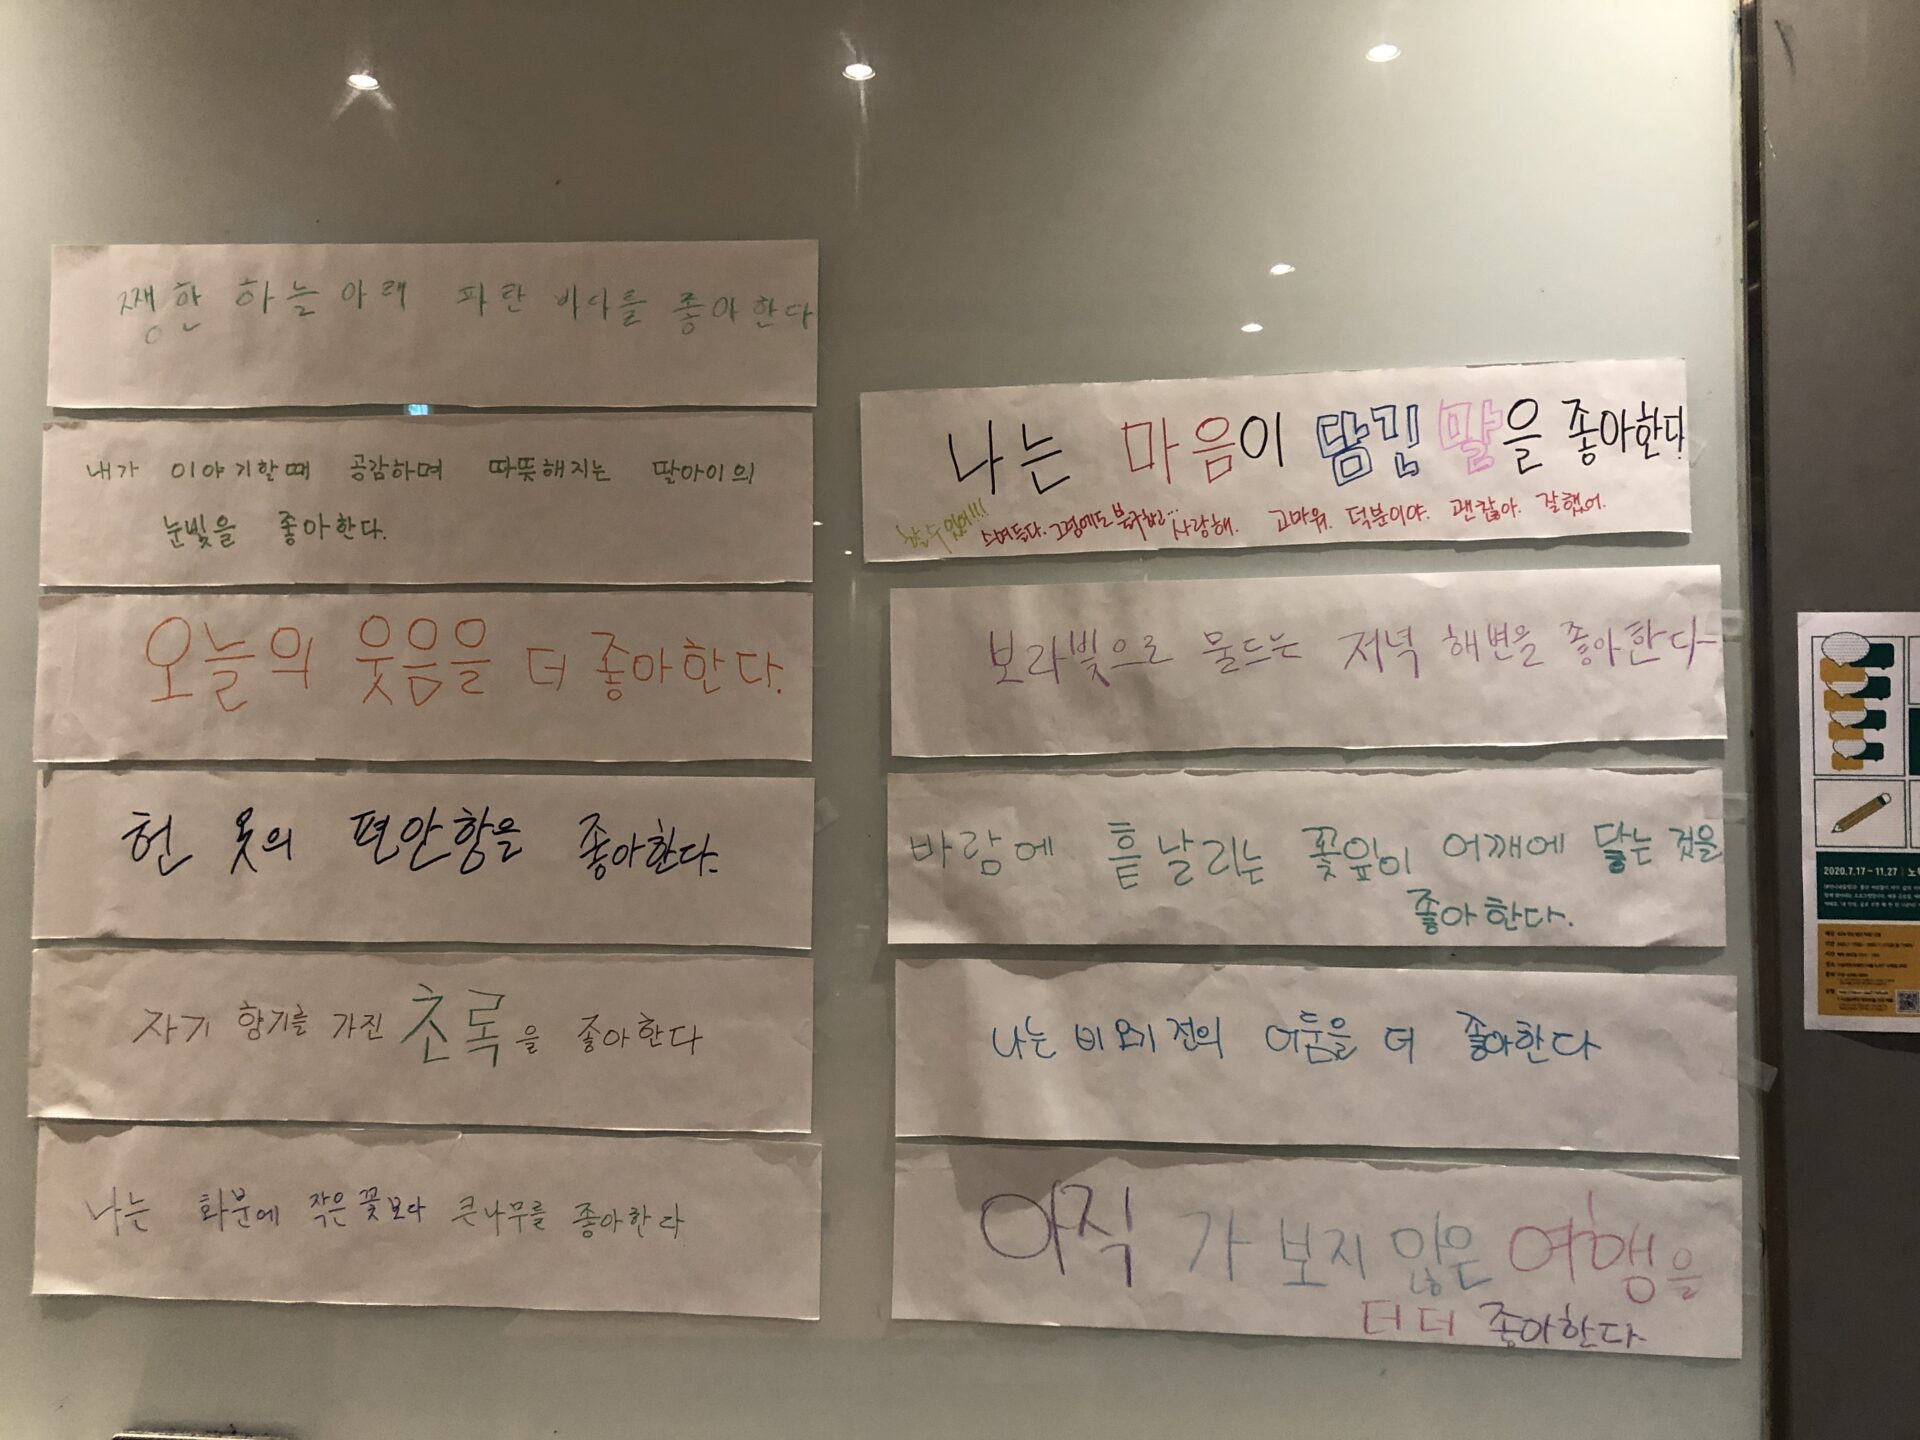 쨍한 하늘아래 파란 바다를 좋아한다
내가 이야기할때 공감하며 따뜻해지는 딸아이의
눈빛을 좋아한다.
오늘의 웃음을 더 좋아한다.
헌 옷의 편안함을 좋아한다.
자기 향기를 가진 초록을 좋아한다
나는 화분에 작은 꽃보다 큰나무를 좋아한다
나는 마음이 담긴 말을 좋아한다
할수있어!!! 스며들다. 그럼에도 불구하고... 사랑해. 고마워. 덕분이야. 괜찮아. 잘했어.
보라빛으로 물드는 저녁 해변을 좋아한다
바람에 흩날리는 꽃잎이 어깨에 닿는 것을
좋아한다.
나는 비오기 전의 어둠을 더 좋아한다
아직 가 보지 않은 여행을
더더 좋아한다
2020.7.17 ~ 11.27